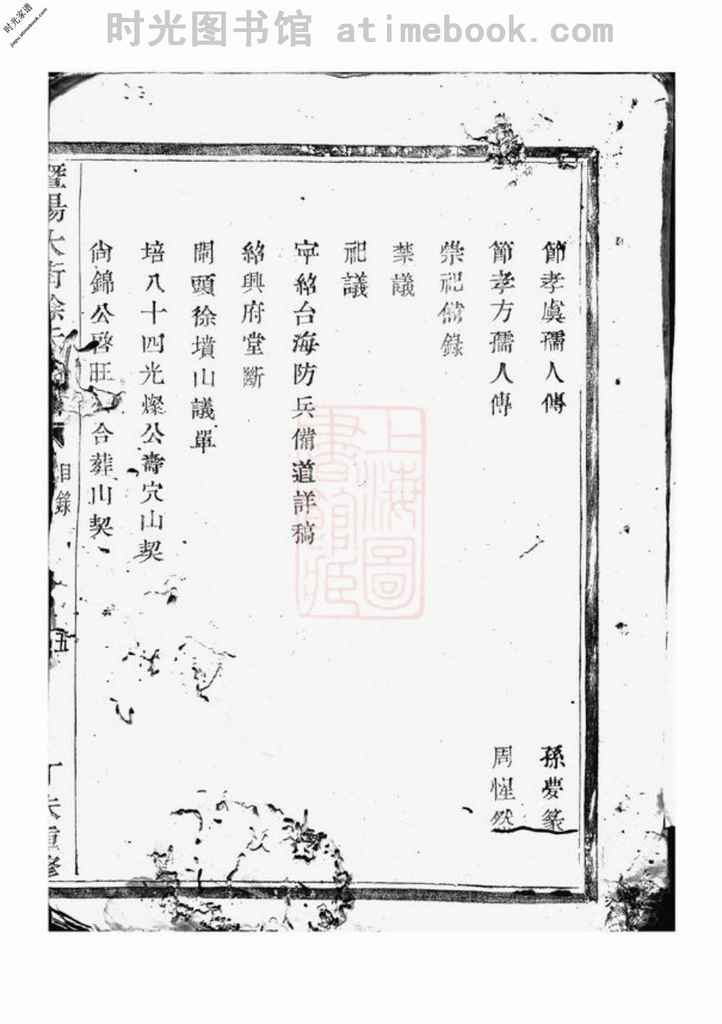 时光图书馆 atimebook.com
时光家谱
jiapu.atimebook.com
節孝虞孺人傳 孫夢篆
節孝方孺人傳 周惺然
崇祀備錄
禁議
祀議
寧紹台海防兵備道詳稿
紹興府堂斷
開頭徐墳山議單
培八十四光燦公壽穴山契
尙錦公啓旺 合葬山契
暨陽大街徐氏
目錄
五
丁未重修
上海圖書館藏